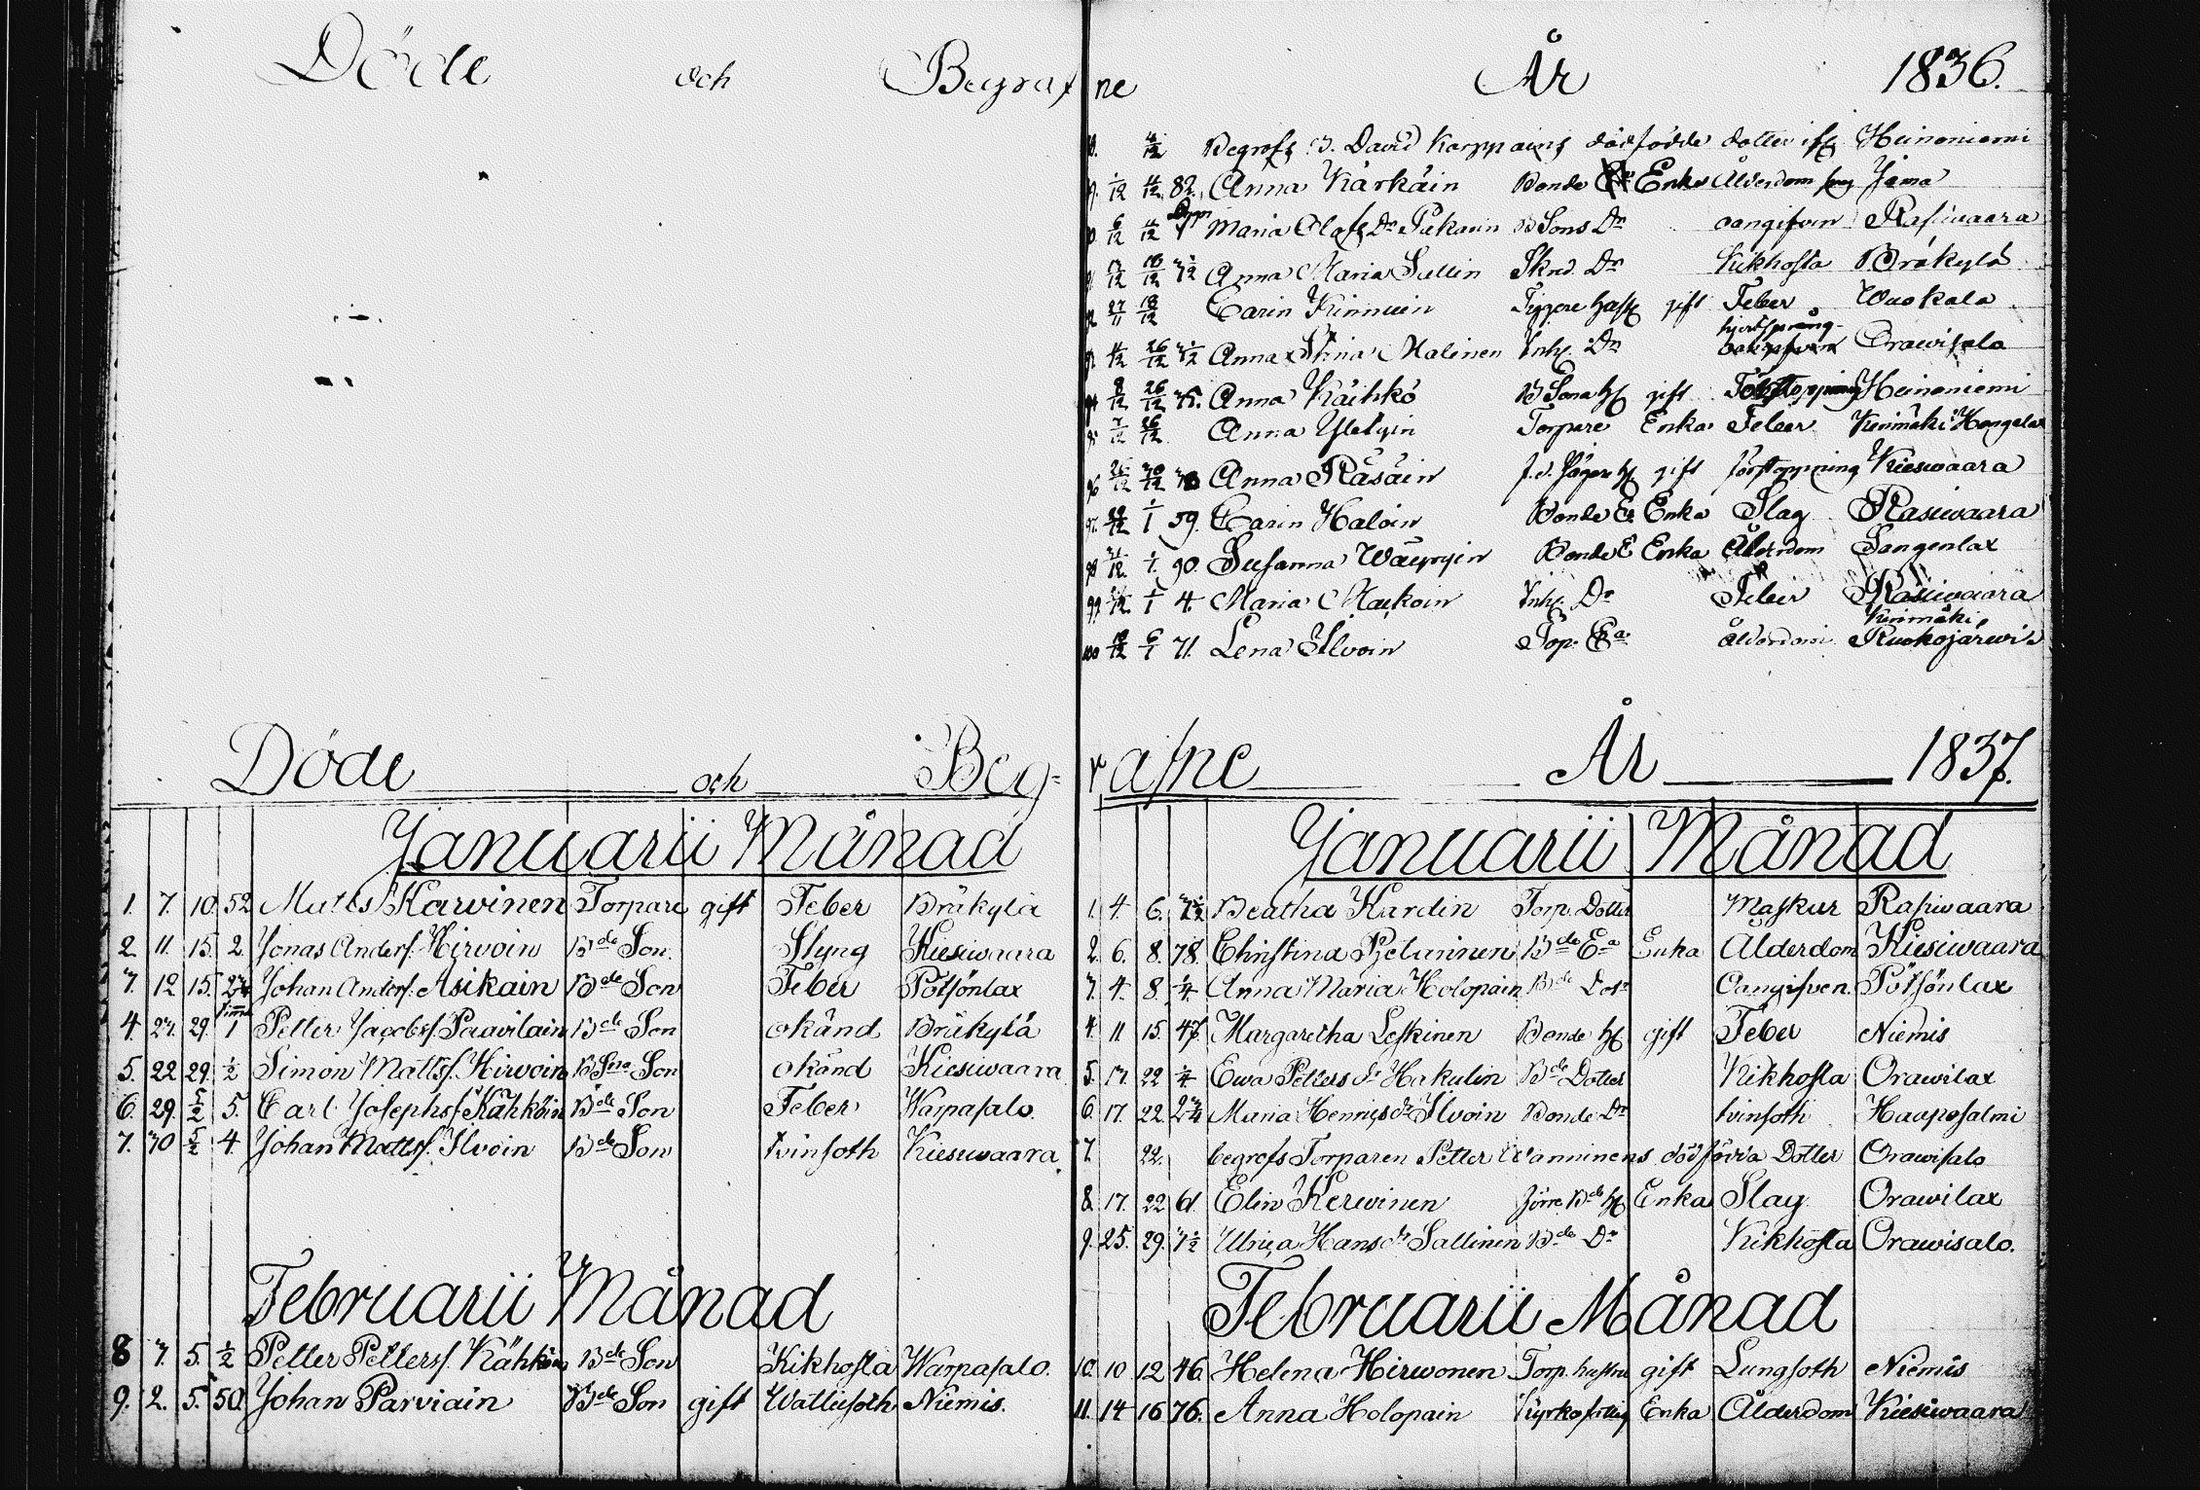 Döde och Begrafne År 1836.
4/12 Begrofs B. David Karppains dödfödde dotter ifr Heinoniemi
1/12 4/12 82. Anna Kärkäin Bonde Enka Ålderdom Jama
6/12 11/12 Maria Olafs Dr Pukarin B Sons Dr oangifven Rasiwaara
18/12 Anna Maria Sullin Dr Kikhosta Bräkylä
27/11 18/12 Carin Kinnuin gift Feber Wuokala
26/12 Anna Stina Malinen Inh. Dr hjertsprång Orawisalo
8/12 26/12 Anna Käihkö B Sona h. gift Förstoppning Heinoniemi
7/12 26/12 Anna Torpare Enka Feber Kerimäki Hangelax
30/12 Anna Räsäin gift förstoppning Kiesiwaara
97. 1/1 59. Carin Haloin Bonde E Enka Slag Rasiwaara
98 1/1 90. Susanna Wäyryin Bonde E Enka Ålderdom Sangenlax
99. 1/1 4. Maria Inh. Dr Feber Rasiwaara
100 6/1 71. Lena Ilvoin Top. Ea ålderdom Kerimäki Ruokojärwi
Döde och Begrafne År 1837.
Januarii Månad
1. 7. 10. 52 Matts Karvinen Torpare gift Feber Bräkylä
2 11 15. 2. Jonas Andersf. Hirvoin Bde Son. Styng Kiesiwaara
3. 12 15. Johan Andersf. Asikain Bde Son Feber Pötsönlax
4. 23. 29. 1 Petter Jacobsf. Paavilain Bde Son okänd Bräkylä
5. 22 29. 1/2 Simon Mattsf. Hirvoin B Sons Son okänd Kiesiwaara
6. 29. 5/2 5. Carl Josephsf. Kähköin Bde Son Feber Warpasalo.
7. 30 5/2 4. Johan Mattsf. Ilvoin Bde Son tvinsoth Kiesiwaara
Februarii Månad
8 3. 5. 1/2 Petter Pettersf. Kähköin Bde Son Kikhosta Warpasalo.
9. 2. 5. 50. Johan Parviain Bde Son gift Wattusoth Niemis.
Januarii Månad
1. 4. 6. Beatha Kardin Torp. Dotter Maskar Rasiwaara
2. 6. 8. 78. Christina Pjelarinen Bde Ea Enka Ålderdom Kiesiwaara
3. 4. 8. 1/4. Anna Maria Holopain Bde Dotr Oangifven. Pötsönlax
4. 11 15. 47. Margaretha Leskinen Bonde h. gift Feber Niemis
5. 13. 22 1/4 Ewa Petters dr Hakulin Bde Dotter Kikhosta Orawilax
6. 17. 22. 2 3/4 Maria Henrics dr Ilvoin Bonde Dr tvinsoth Haaposalmi
7. 22. begrofs Torparen Petter Wanninens dödfödda Dotter Orawisalo
8. 17. 22 61 Elin Kerwinen förre Bde h. Enka Slag Orawilax
9. 25. 29. 3 1/2 Ulrica Hans dr Sallinen Bde Dr Kikhosta Orawisalo.
Februarii Månad
10. 10 12 46. Helena Hirwonen Torp. hustru gift Lungsoth Niemis
11. 14 16 76. Anna Holopain Kyrkofattig Enka Ålderdom Kiesiwaara